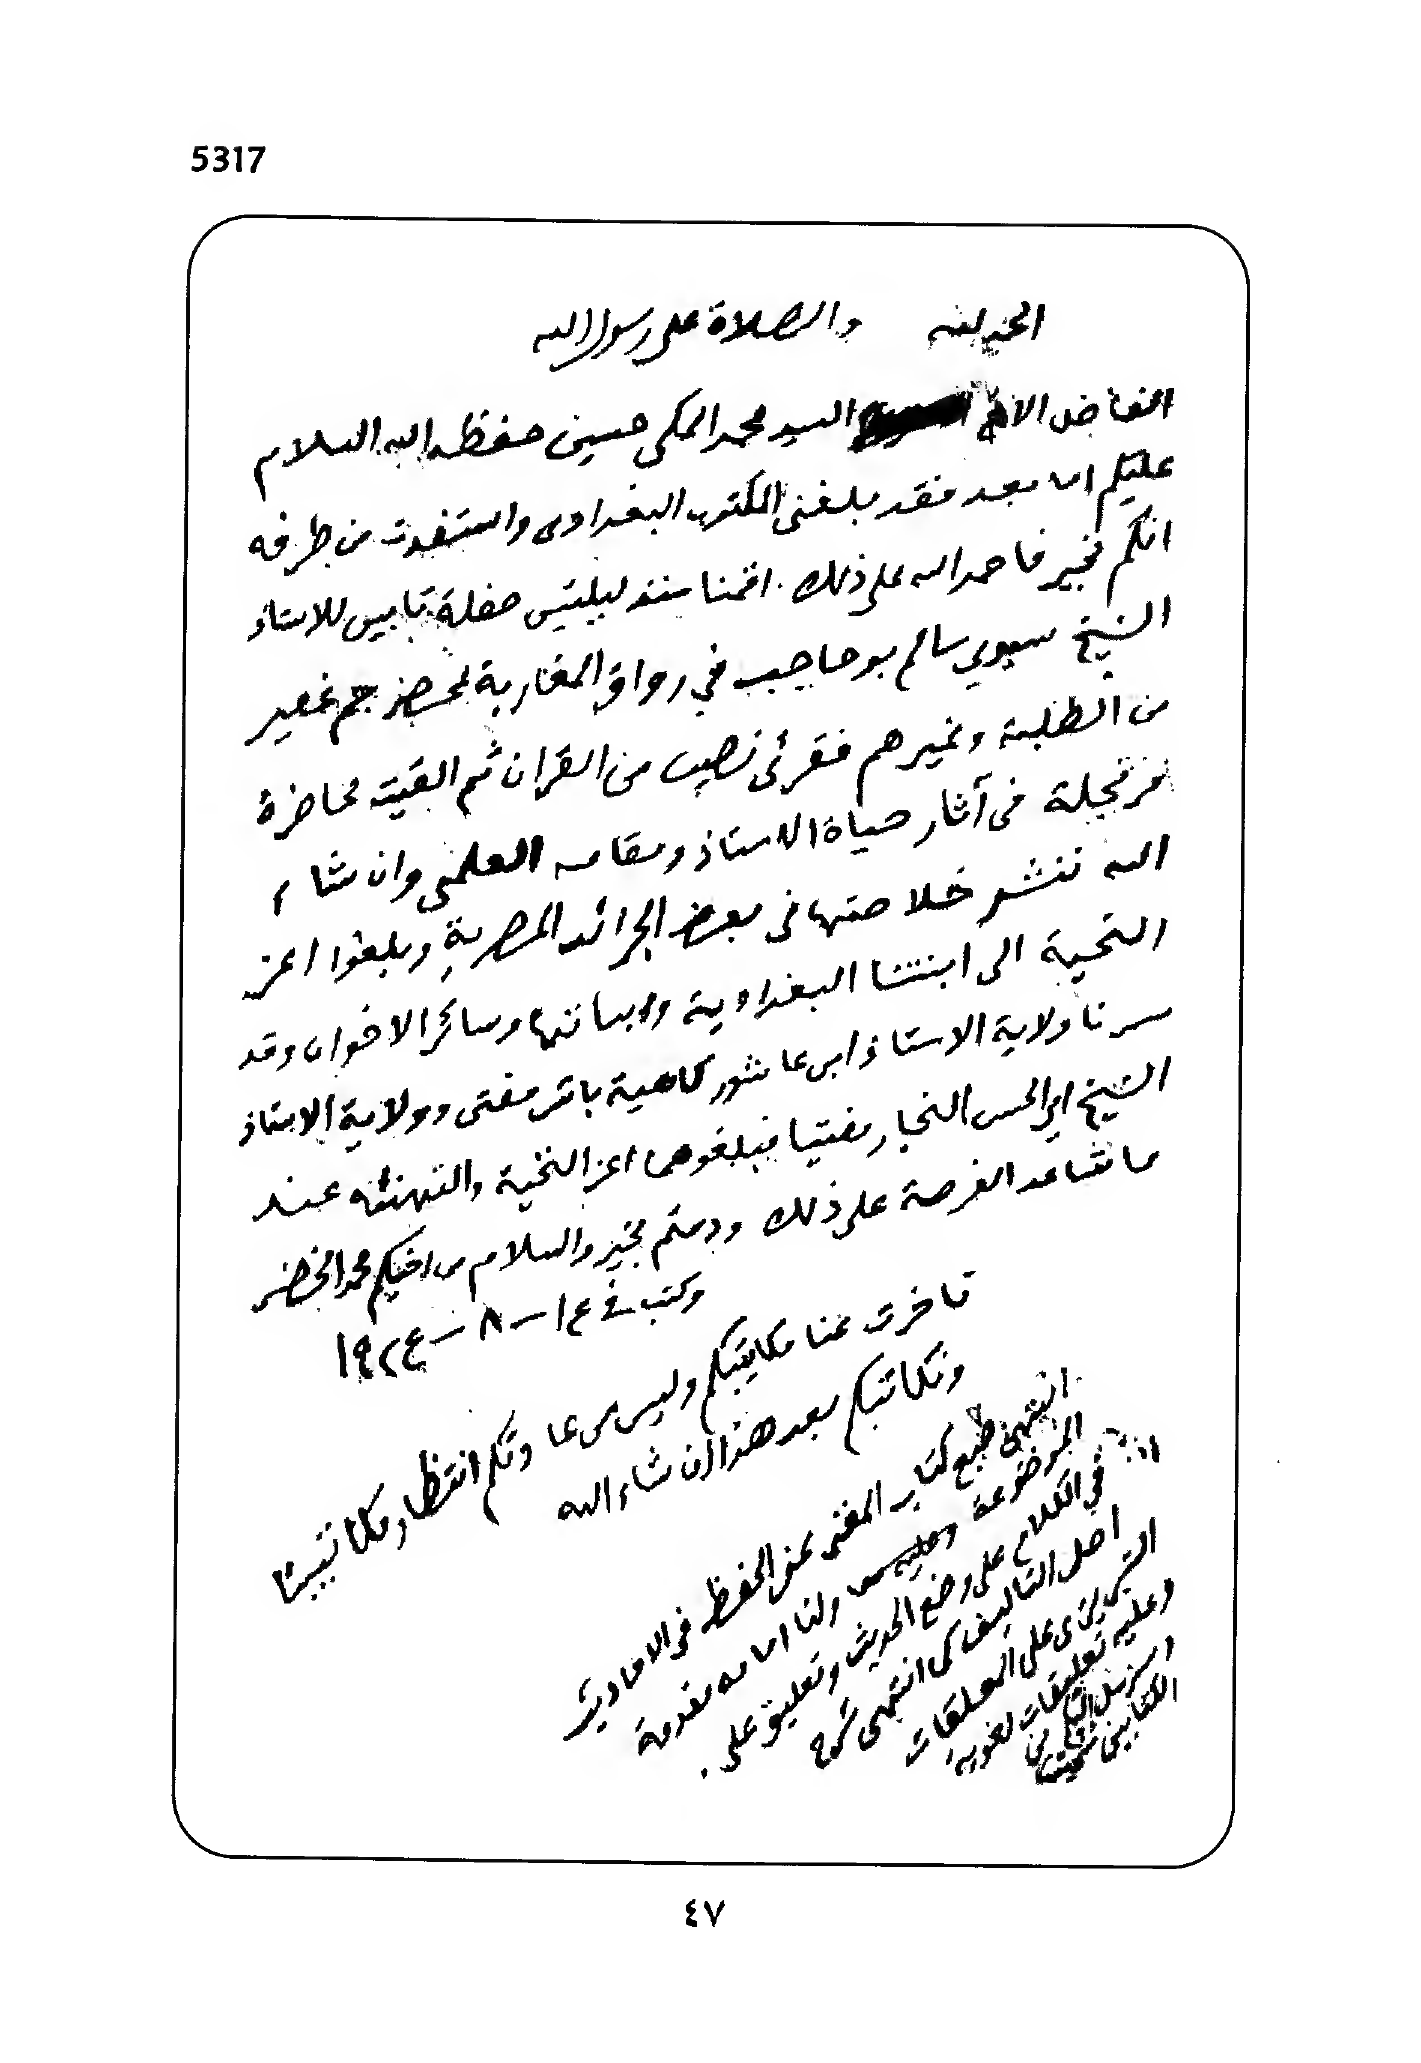 5317
الحمد لله والصلاة على رسول الله
الفاضل الاخ السيد محمد المكي حسين حفظه الله السلام
عليكم اما بعد فقد بلغني المكتوب البغدادي واستفدت من طرفه
انكم بخير فاحمد الله على ذلك. اقمنا منذ ليلتين حفلة تابين للاستاذ
الشيخ سيدي سالم بوحاجب في رواق المغاربة فحضر جم غفير
من الطلبة وغيرهم فقرئ نصيب من القرآن ثم القيت محاضرة
مرتجلة في آثار حياة الاستاذ ومقامه العلمي وان شاء
الله ننشر خلاصتها في بعض الجرائد المصرية وبلغوا اعز
التحية الى ابنتنا البغدادية وسائر الاخوان وقد
سرنا ولاية الاستاذ ابن عاشور كاهية باش مفتي وولاية الاستاذ
الشيخ ابي الحسن النجار مفتيا فبلغوهما اعز التحية والتهنئة عند
ما تساعد الفرصة على ذلك ودمتم بخير والسلام من اخيكم محمد الخضر
وكتب في ١٤ - ٨ - ١٩٢٤
تاخرت عنا مكاتيبكم وليس من عادتكم انتظار مكاتيبنا
ونكاتبكم بعد هذا ان شاء الله
انتهى طبع كتاب المغني عن الحفظ في الاحاديث
الموضوعة ولنا امامه مقدمة
في الكلام على وضع الحديث وتعليق على
اصل التاليف كما انتهى شرح
التبريزي على المعلقات
وعليه تعليقات لغوية
٤٧